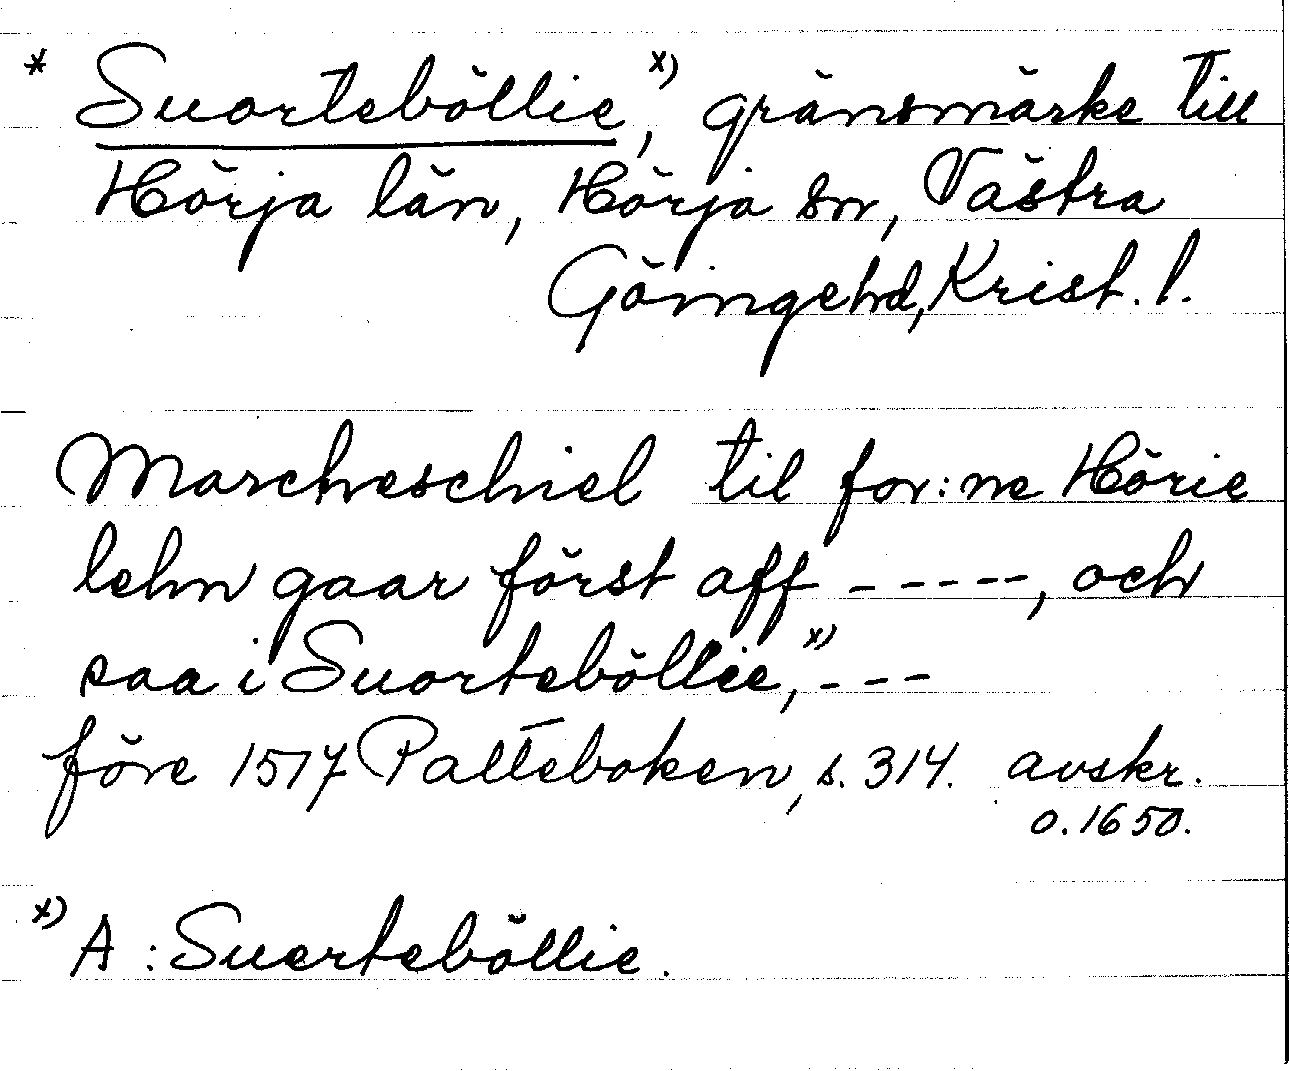 * Suorteböllie,x) gränsmärke till
Hörja län, Hörja sn, Västra
Göingehd, Krist. l.
Marcheschiel til for:ne Hörie
lehn gaar först aff -----, och
saa i Suorteböllie,x) ---
före 1517 Palteboken, s. 314. avskr.
o. 1650.
x) A: Suerteböllie.